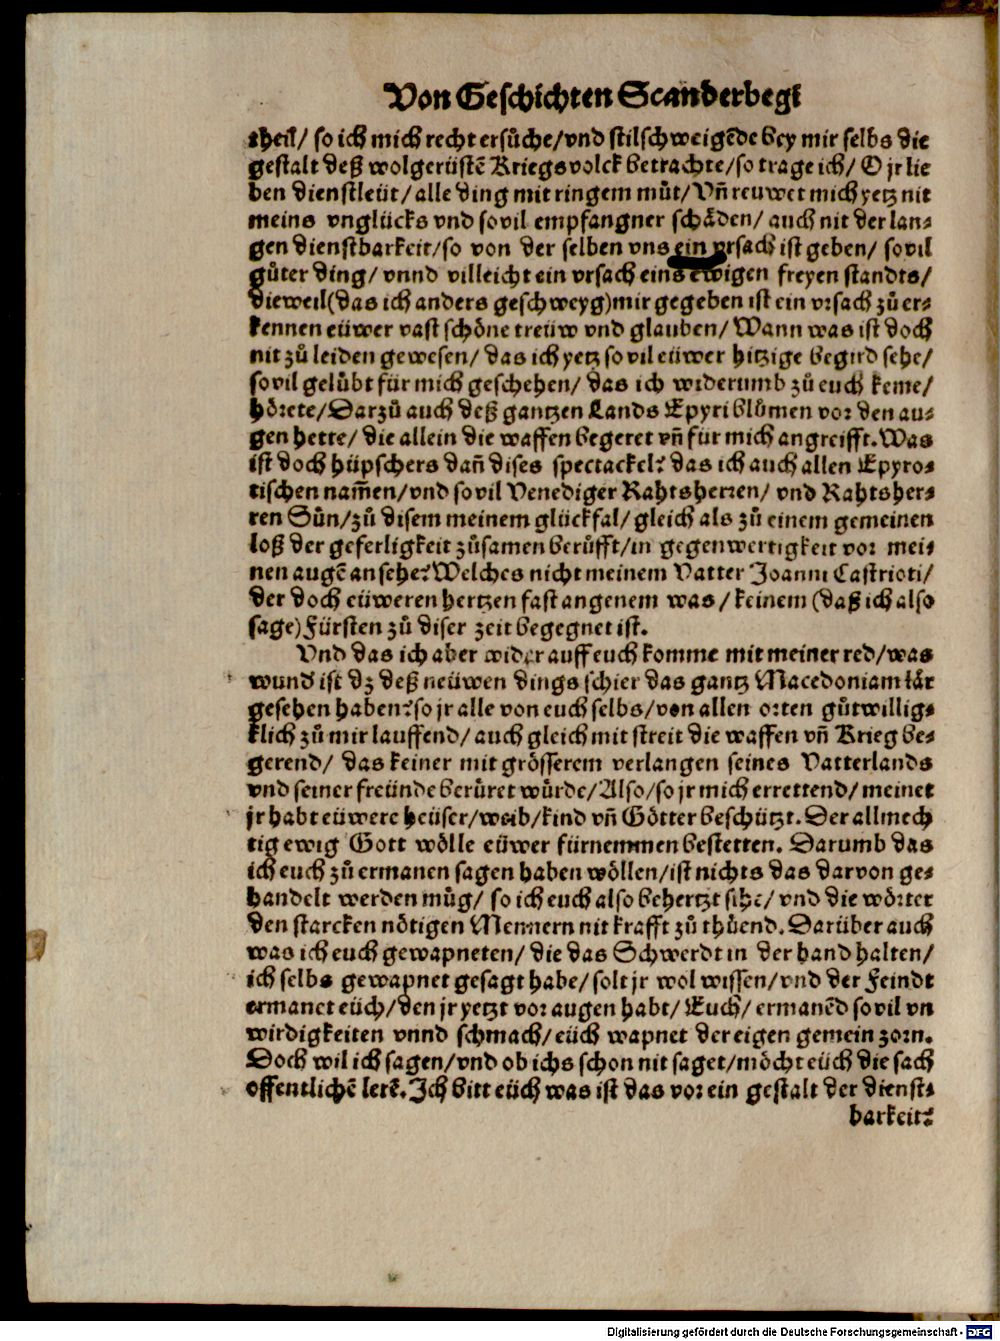 Von Geschichten Scanderbegi
theil/ so ich mich recht ersůche/vnd stilschweigẽde bey mir selbs die
gestalt deß wolgerüstẽ Kriegsvolck betrachte/so trage ich/ O jr lie
ben dienstleüt/ alle ding mit ringem můt/ Vñ reuwet mich yetz nit
meins vnglücks vnd sovil empfangner schäden/ auch nit der lan-
gen dienstbarkeit/so von der selben vns ein vrsach ist geben/ sovil
gůter ding/ vnnd villeicht ein vrsach eins ewigen freyen standts/
dieweil(das ich anders geschweyg)mir gegeben ist ein vrsach zů er-
kennen eüwer vast schöne treüw vnd glauben/ Wann was ist doch
nit zů leiden gewesen/ das ich yetz so vil eüwer hitzige begird sehe/
sovil gelübt für mich geschehen/ das ich widerumb zů euch keme/
hörete/Darzů auch deß gantzen Lands Epyri blůmen vor den au-
gen hette/ die allein die waffen begeret vñ für mich angreifft. Was
ist doch hüpschers dañ dises spectackel? das ich auch allen Epyro-
tischen nam̃en/vnd sovil Venediger Rahtsherren/ vnd Rahtsher-
ren Sün/zů disem meinem glückfal/ gleich als zů einem gemeinen
loß der geferligkeit zůsamen berůfft/in gegenwertigkeit vor mei-
nen augẽ ansehe? Welches nicht meinem Vatter Joanni Castrioti/
der doch eüweren hertzen fast angenem was/ keinem (daß ich also
sage) Fürsten zů diser zeit begegnet ist.
Vnd das ich aber wider auff euch komme mit meiner red/was
wund' ist dz deß neüwen dings schier das gantz Macedoniam lär
gesehen haben? so jr alle von euch selbs/von allen orten gůtwillig-
klich zů mir lauffend/ auch gleich mit streit die waffen vñ Krieg be-
gerend/ das keiner mit grösserem verlangen seines Vatterlands
vnd seiner freünde berůret würde/Also/so jr mich errettend/ meinet
jr habt eüwere heüser/weib/kind vñ Götter beschützt. Der allmech
tig ewig Gott wölle eüwer fürnemmen bestetten. Darumb das
ich euch zů ermanen sagen haben wöllen/ist nichts das darvon ge-
handelt werden můg/ so ich euch also behertzt sihe/ vnd die wörter
den starcken nötigen Mennern nit krafft zů thůend. Darüber auch
was ich euch gewapneten/ die das Schwerdt in der hand halten/
ich selbs gewapnet gesagt habe/ solt jr wol wissen/vnd der Feindt
ermanet eüch/den jr yetzt vor augen habt/ Euch/ ermanẽd sovil vn
wirdigkeiten vnnd schmach/ eüch wapnet der eigen gemein zorn.
Doch wil ich sagen/vnd ob ichs schon nit saget/möcht eüch die sach
offentlichẽ lerẽ. Ich bitt eüch was ist das vor ein gestalt der dienst-
barkeit?
Digitalisierung gefördert durch die Deutsche Forschungsgemeinschaft - DFG